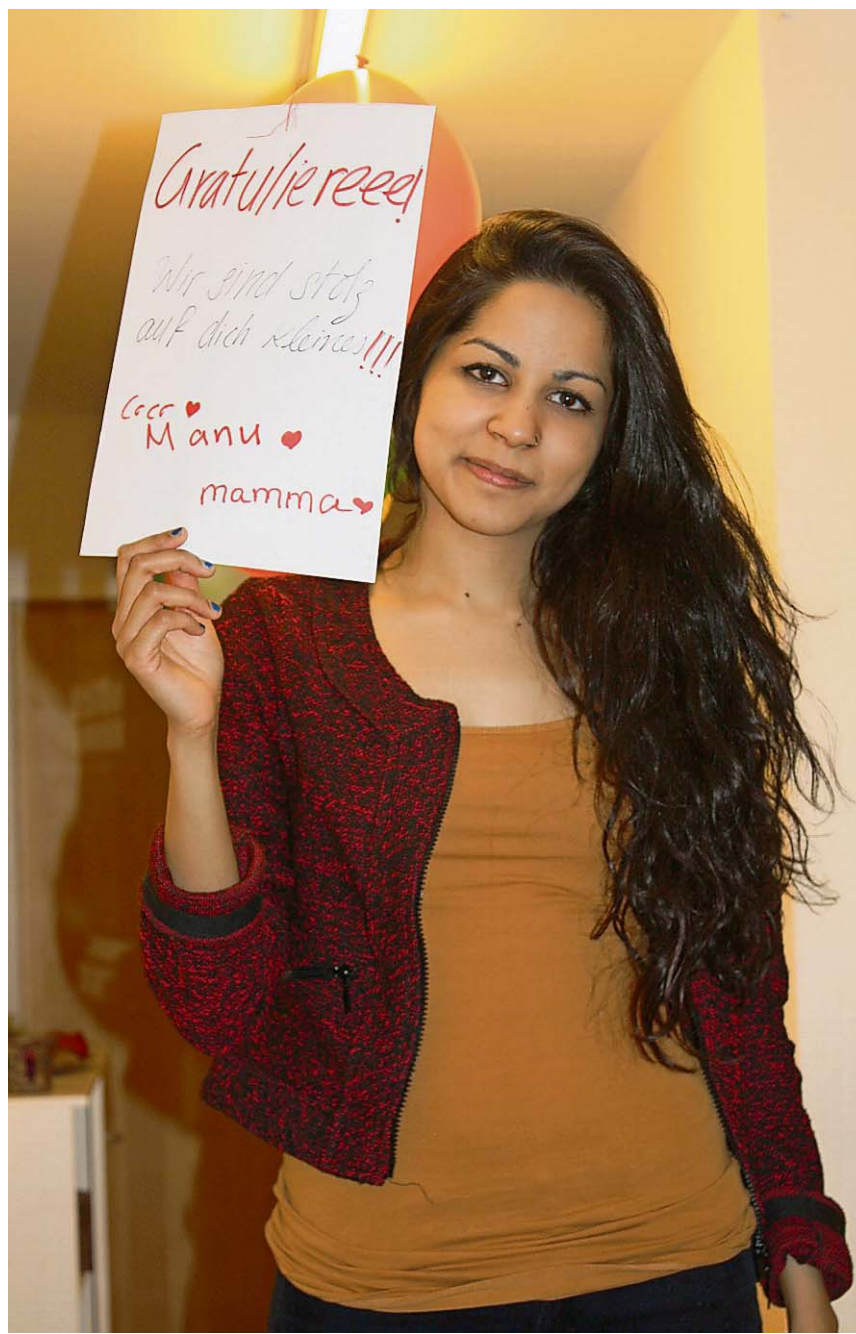 Gratuliereee!
Wir sind stolz
auf dich kleines!!!
Manu ♥
mamma ♥